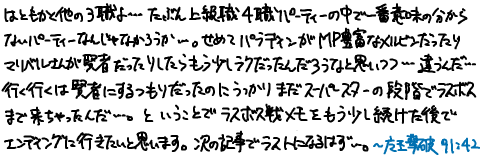 はともかく他の3職よ…たぶん上級職4職パーティーの中で一番意味の分から
ないパーティーなんじゃなかろうか…。せめてパラディンがMP豊富なメルビンだったり
マリベルさんが賢者だったりしたらもう少しラクだったんだろうなと思いつつ…違うんだ…
行く行くは賢者にするつもりだったのにうっかりまだスーパースターの段階でラスボス
まで来ちゃったんだ…。ということでラスボス戦メモをもう少し続けた後で
エンディングに行きたいと思います。次の記事でラストになるはず…。~左王撃破 91:42